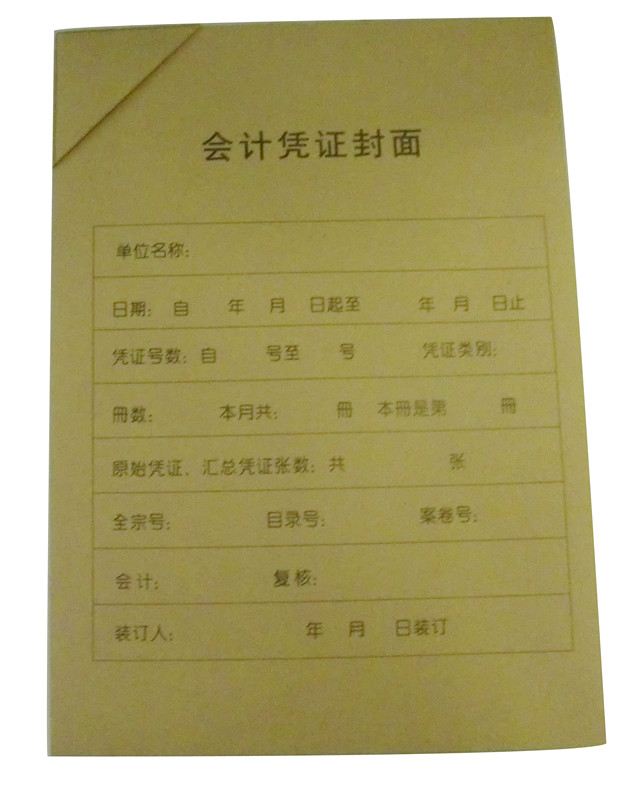 会计凭证封面
单位名称:
日期: 自 年 月 日起至 年 月 日止
凭证号数: 自 号至 号 凭证类别:
冊数: 本月共: 冊 本冊是第 冊
原始凭证、汇总凭证张数: 共 张
全宗号: 目录号: 案卷号:
会计: 复核:
装订人: 年 月 日装订